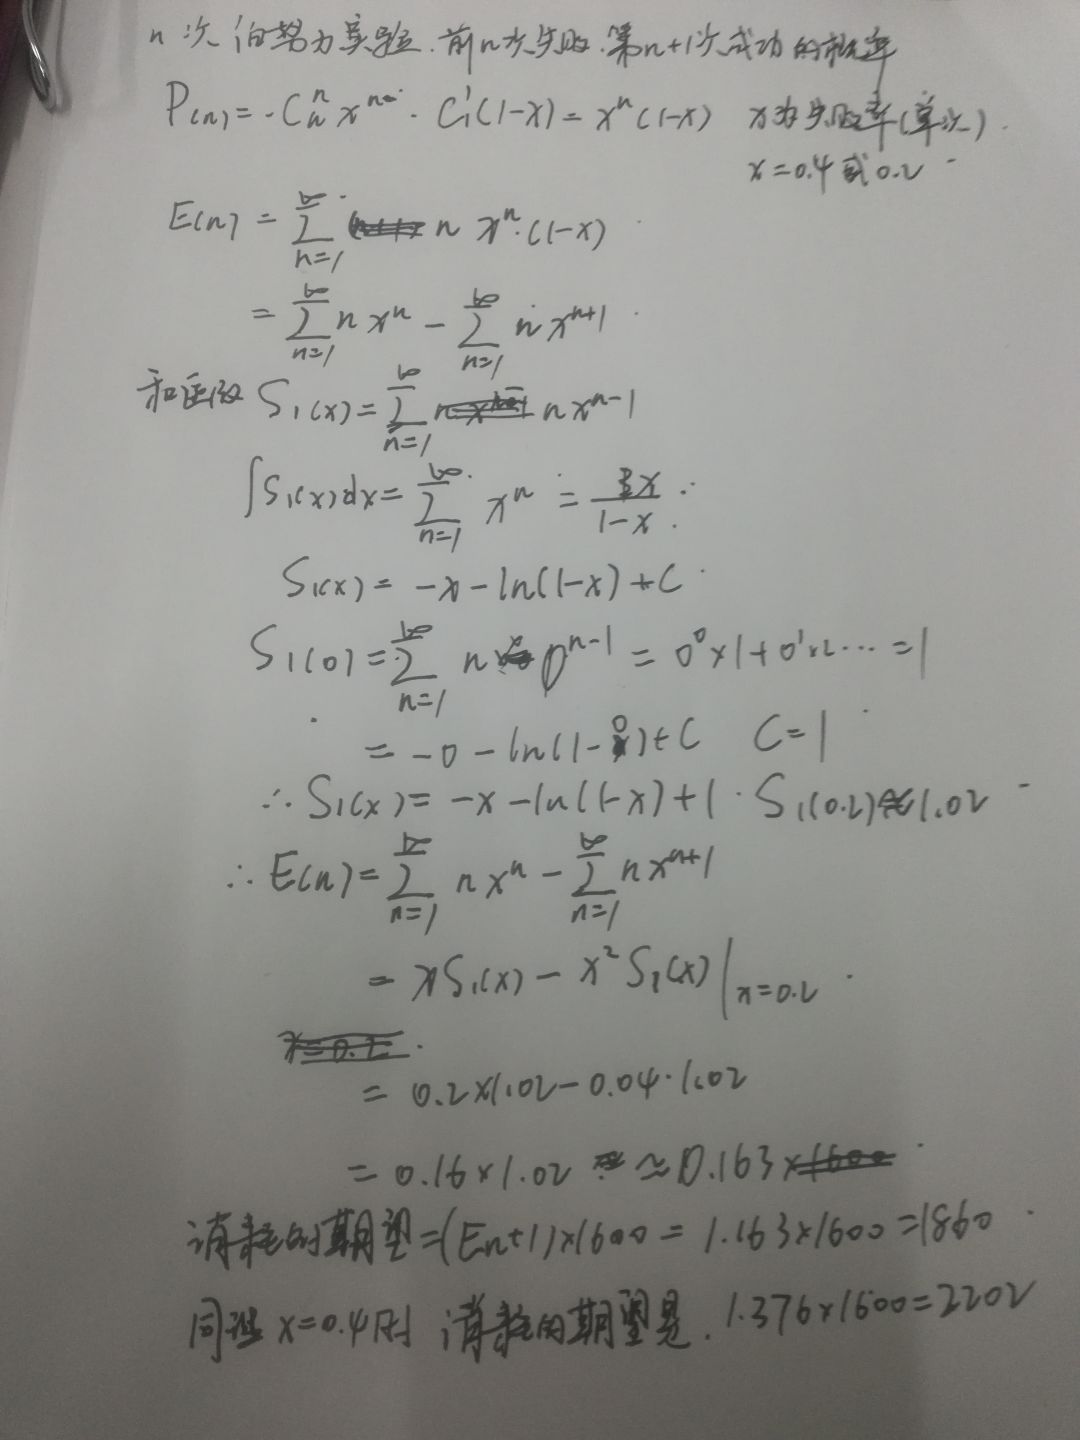 n次伯努力实验.前n次失败.第n+1次成功的概率
P(n)=C_n^n x^n · C_1^1(1-x)=x^n(1-x) x为失败率(单次).
x=0.4或0.2
E(n)=∑_{n=1}^∞ n x^n·(1-x)
=∑_{n=1}^∞ n x^n-∑_{n=1}^∞ n x^{n+1}
和函数 S_1(x)=∑_{n=1}^∞ n x^{n-1}
∫S_1(x)dx=∑_{n=1}^∞ x^n=\frac{x}{1-x}
S_1(x)=-x-ln(1-x)+C
S_1(0)=∑_{n=1}^∞ n 0^{n-1}=0^0×1+0^1×2…=1
=-0-ln(1-0)+C C=1
∴S_1(x)=-x-ln(1-x)+1. S_1(0.2)≈1.02
∴E(n)=∑_{n=1}^∞ n x^n-∑_{n=1}^∞ n x^{n+1}
=xS_1(x)-x^2 S_1(x)|_{x=0.2}
=0.2×1.02-0.04·1.02
=0.16×1.02≈0.163
消耗的期望=(En+1)×1600=1.163×1600=1860
同理x=0.4时 消耗的期望是.1.376×1600=2202